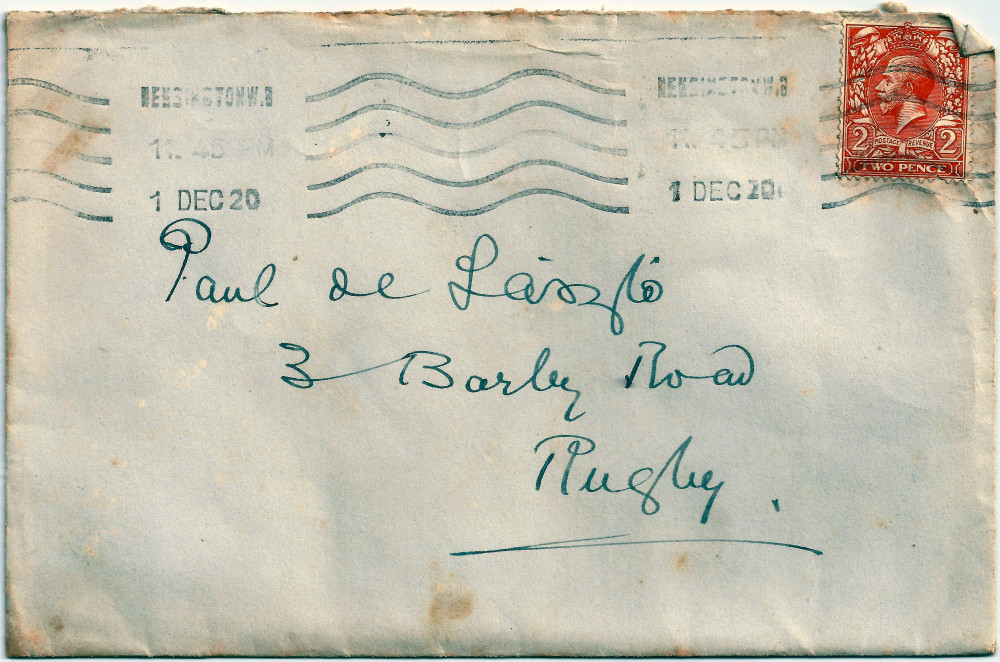 KENSINGTON W.8 KENSINGTON W.8
11.45 PM 11.45 PM
1 DEC 20 1 DEC 20
2 POSTAGE REVENUE 2
TWO PENCE
Paul de László
3 Barby Road
Rugby.